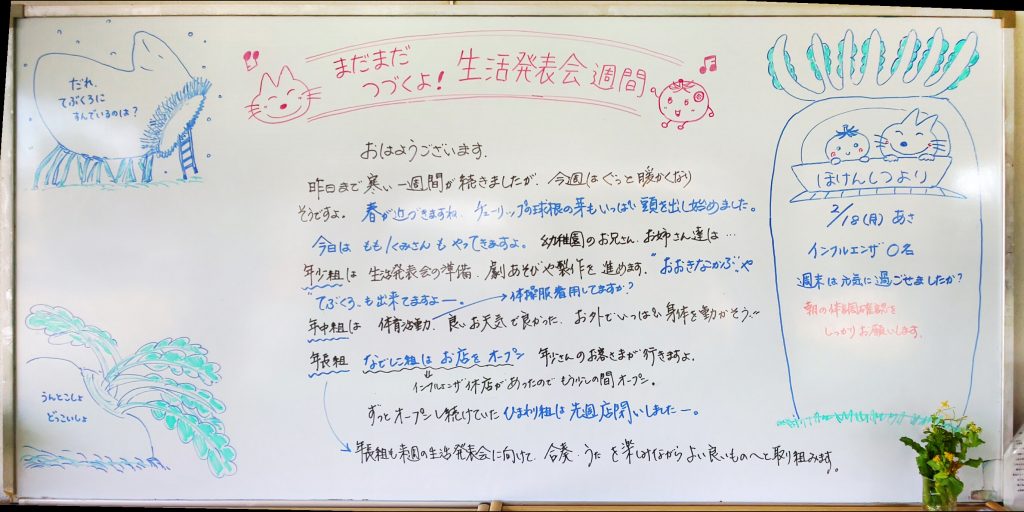 だれ、
てぶくろに
すんでいるのは？
まだまだ
つづくよ！
生活発表会週間
おはようございます.
昨日まで寒い一週間が続きましたが、今週はぐっと暖かくなり
そうですよ。春が近づきますね. チューリップの球根の芽もいっぱい頭を出し始めました。
今日はもも1くみさんもやってきますよ。幼稚園のお兄さん、お姉さん達は…
年少組は生活発表会の準備、劇あそびや製作を進めます. "おおきなかぶ"や
"てぶくろ"も出来てますよー。→体操服着用してますか？
年中組は 体育活動、良いお天気で良かった. お外でいっぱい身体を動かそう〜
年長組 なでしこ組はお店をオープン 年少さんのお客さまが行きますよ。
インフルエンザ休店があったのでもう少しの間オープン。
ずっとオープンし続けていたひまわり組は先週店閉いしましたー。
年長組も来週の生活発表会に向けて、合奏・うたを楽しみながらよい良いものへと取り組みます。
うんとこしょ
どっこいしょ
ほけんしつより
2/18(月) あさ
インフルエンザ 0名
週末は元気に過ごせましたか？
朝の体調確認を
しっかりお願いします.